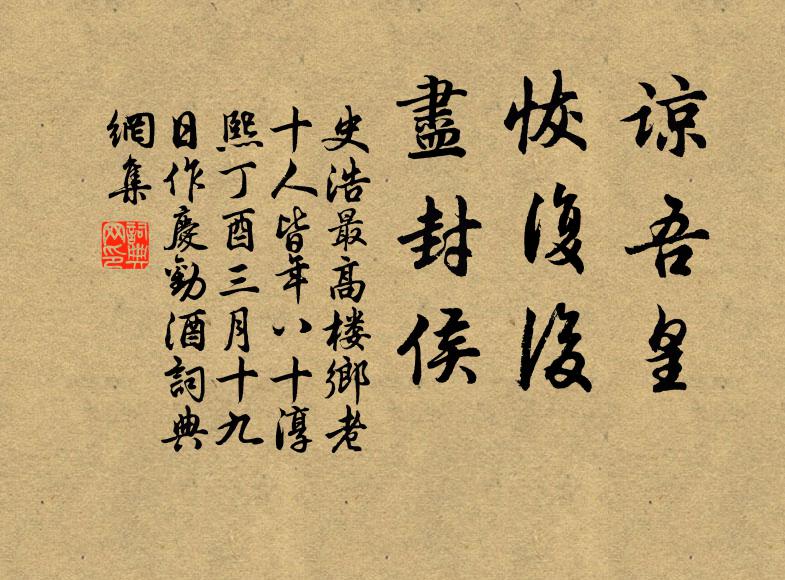 谅吾皇
恢復後
盡封侯
史浩最高楼鄉老
十人皆年八十淳
熙丁酉三月十九
日作慶勸酒詞典
網集
詞典
网印